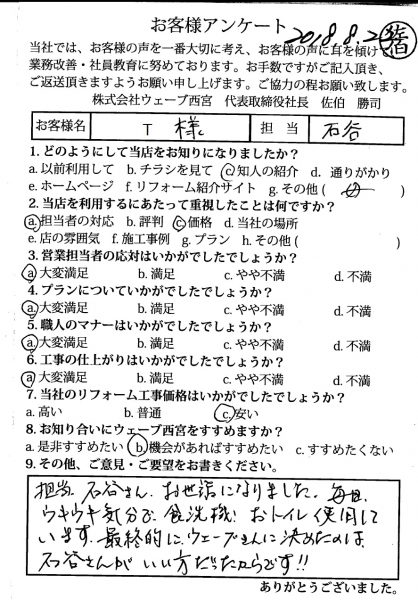 お客様アンケート 2018.8.2 済
当社では、お客様の声を一番大切に考え、お客様の声に耳を傾けて
業務改善・社員教育に努めております。お手数ですがご記入頂き、
ご返送頂きますようお願い申し上げます。ご協力の程お願い致します。
株式会社ウェーブ西宮 代表取締役社長 佐伯 勝司
お客様名 T 様 担当 石谷
1. どのようにして当店をお知りになりましたか?
a. 以前利用して b. チラシを見て c 知人の紹介 d. 通りがかり
e. ホームページ f. リフォーム紹介サイト g. その他( 母 )
2. 当店を利用するにあたって重視したことは何ですか?
a. 担当者の対応 b. 評判 c. 価格 d. 当社の場所
e. 店の雰囲気 f. 施工事例 g. プラン h. その他( )
3. 営業担当者の応対はいかがでしたでしょうか?
a. 大変満足 b. 満足 c. やや不満 d. 不満
4. プランについていかがでしたでしょうか?
a. 大変満足 b. 満足 c. やや不満 d. 不満
5. 職人のマナーはいかがでしたでしょうか?
a. 大変満足 b. 満足 c. やや不満 d. 不満
6. 工事の仕上がりはいかがでしたでしょうか?
a. 大変満足 b. 満足 c. やや不満 d. 不満
7. 当社のリフォーム工事価格はいかがでしたでしょうか?
a. 高い b. 普通 c. 安い
8. お知り合いにウェーブ西宮をすすめますか?
a. 是非すすめたい b. 機会があればすすめたい c. すすめたくない
9. その他、ご意見・ご要望をお書きください。
担当 石谷さん、お世話になりました。毎日、
ウキウキ気分で、食洗機、おトイレ使用して
います。最終的に、ウェーブさんに決めたのは、
石谷さんが いい方だったからです!!
ありがとうございました。